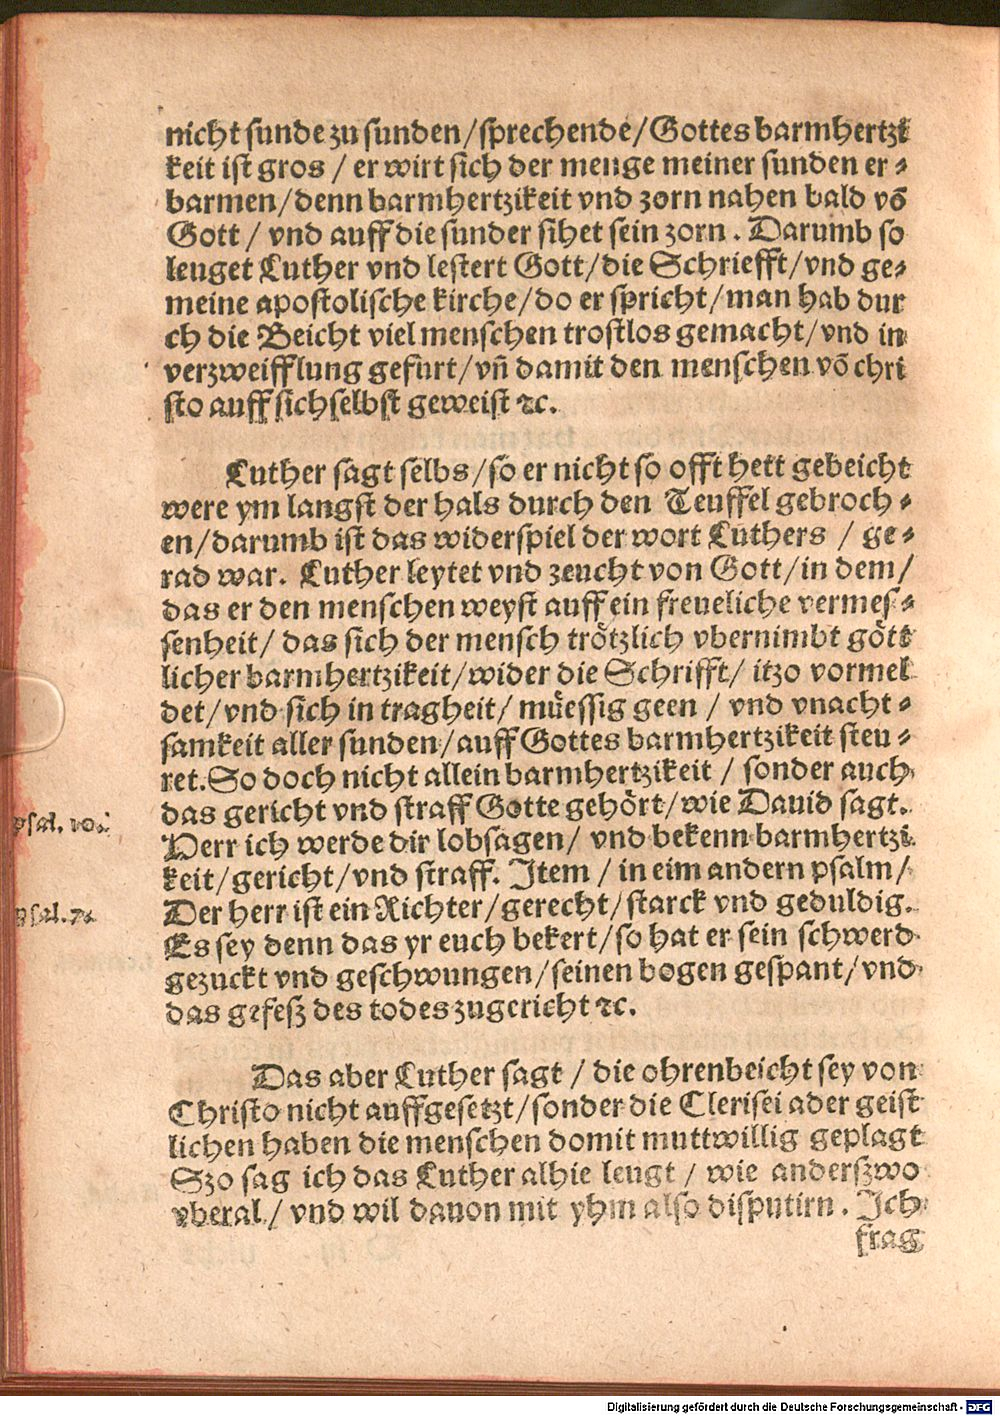 nicht sunde zu sunden/sprechende/Gottes barmhertzi
keit ist gros / er wirt sich der menge meiner sunden er-
barmen/denn barmhertzikeit vnd zorn nahen bald vō
Gott / vnd auff die sunder sihet sein zorn . Darumb so
leuget Luther vnd lestert Gott/die Schriefft/vnd ge-
meine apostolische kirche/do er spricht/man hab dur
ch die Beicht viel menschen trostlos gemacht/vnd in
verzweifflung gefurt/vñ damit den menschen vō chri
sto auff sich selbst geweist ꝛc.
Luther sagt selbs/so er nicht so offt hett gebeicht
were ym langst der hals durch den Teuffel gebroch-
en/darumb ist das widerspiel der wort Luthers / ge-
rad war. Luther leytet vnd zeucht von Gott/in dem/
das er den menschen weyst auff ein freueliche vermes-
senheit/ das sich der mensch trötzlich vbernimbt gött
licher barmhertzikeit/wider die Schrifft/ itzo vormel
det/vnd sich in tragheit/ müessig geen / vnd vnacht-
samkeit aller sunden/auff Gottes barmhertzikeit steu-
ret. So doch nicht allein barmhertzikeit / sonder auch
das gericht vnd straff Gotte gehört/wie Dauid sagt.
psal. 10.
Herr ich werde dir lobsagen/ vnd bekenn barmhertzi
keit/gericht/vnd straff. Item / in eim andern psalm/
psal. 7.
Der herr ist ein Richter/gerecht/starck vnd geduldig.
Es sey denn das yr euch bekert/so hat er sein schwerd
gezuckt vnd geschwungen/seinen bogen gespant/vnd
das gefesz des todes zugericht ꝛc.
Das aber Luther sagt / die ohrenbeicht sey von
Christo nicht auffgesetzt/sonder die Clerisei ader geist
lichen haben die menschen domit muttwillig geplagt
Szo sag ich das Luther alhie leugt / wie anderszwo
vberal / vnd wil dauon mit yhm also disputirn . Ich
frag
Digitalisierung gefördert durch die Deutsche Forschungsgemeinschaft - DFG